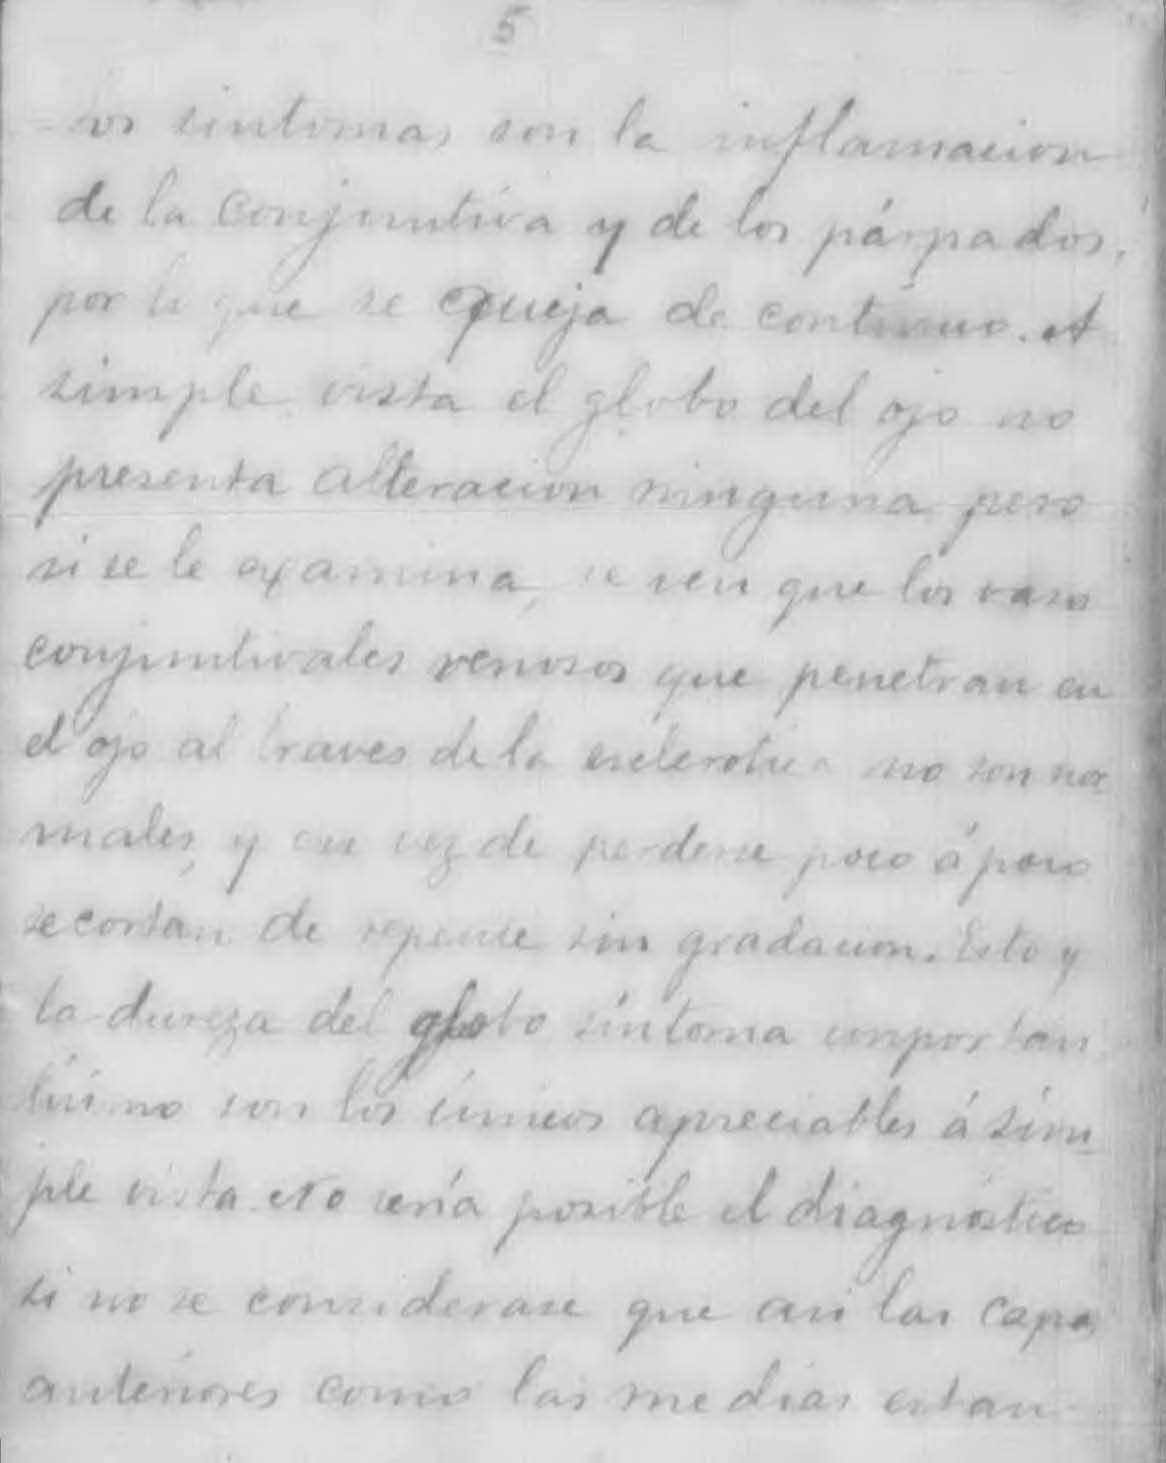 5
los sintomas son la inflamacion
de la conjuntiva y de los párpados,
por lo que se queja de contínuo. A
simple vista el globo del ojo no
presenta alteracion ninguna pero
si se le examina, se ven que los vasos
conjuntivales venosos que penetran en
el ojo al traves de la esclerotica no son nor
males, y en vez de perderse poco á poco
se cortan de repente sin gradacion. Esto y
la dureza del globo síntoma importan
tísimo son los únicos apreciables á sim
ple vista. No sería posible el diagnóstico
si no se considerase que asi las capas
anteriores como las medias estan